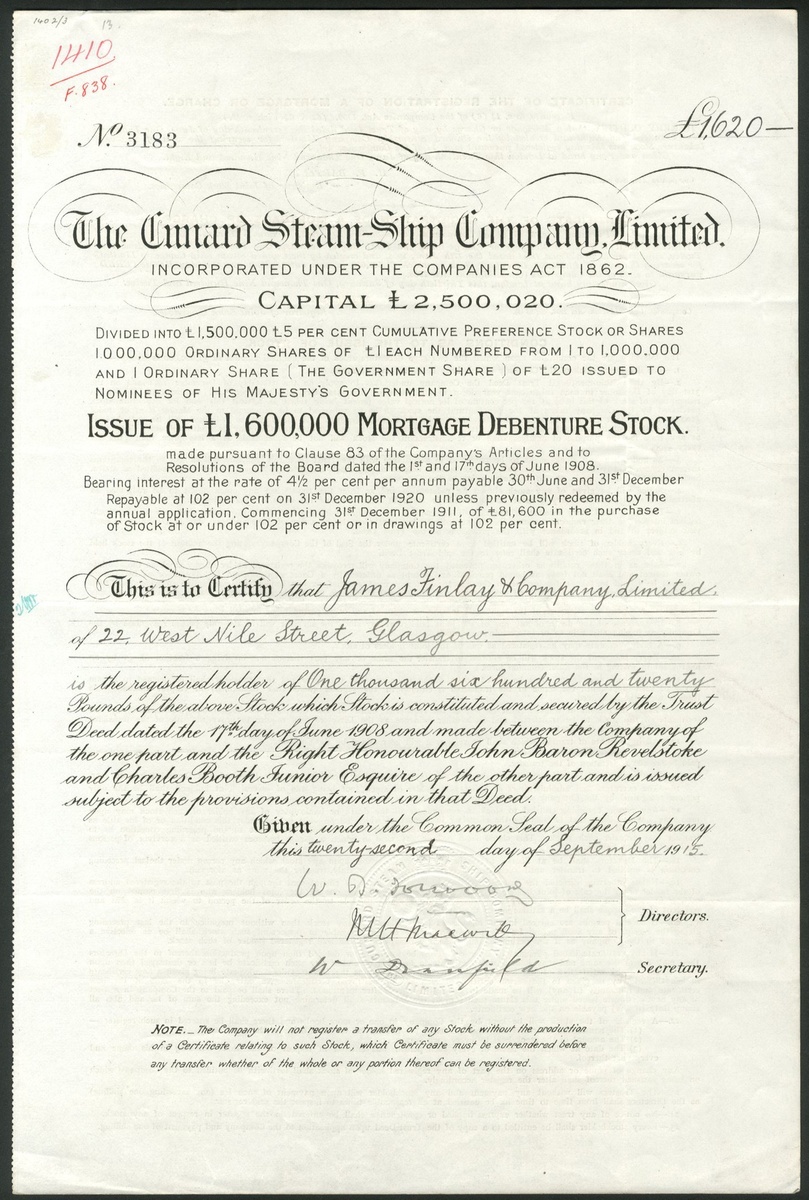 1402/3 13.
1410
F.838.
No. 3183
£1,620—
The Cunard Steam-Ship Company, Limited.
INCORPORATED UNDER THE COMPANIES ACT 1862.
CAPITAL £2,500,020.
DIVIDED INTO £1,500,000 £5 PER CENT CUMULATIVE PREFERENCE STOCK OR SHARES
1.000,000 ORDINARY SHARES OF £1 EACH NUMBERED FROM 1 TO 1,000.000
AND 1 ORDINARY SHARE (THE GOVERNMENT SHARE) OF £20 ISSUED TO
NOMINEES OF HIS MAJESTY'S GOVERNMENT.
ISSUE OF £1,600,000 MORTGAGE DEBENTURE STOCK.
made pursuant to Clause 83 of the Company's Articles and to
Resolutions of the Board dated the 1st and 17th days of June 1908.
Bearing interest at the rate of 4½ per cent per annum payable 30th June and 31st December
Repayable at 102 per cent on 31st December 1920 unless previously redeemed by the
annual application, Commencing 31st December 1911, of £81,600 in the purchase
of Stock at or under 102 per cent or in drawings at 102 per cent.
This is to Certify that James Finlay & Company, Limited.
of 22, West Nile Street, Glasgow.
is the registered holder of One thousand six hundred and twenty
Pounds of the above Stock which Stock is constituted and secured by the Trust
Deed dated the 17th day of June 1908 and made between the Company of
the one part and the Right Honourable John Baron Revelstoke
and Charles Booth Junior Esquire of the other part and is issued
subject to the provisions contained in that Deed.
Given under the Common Seal of the Company
this twenty-second day of September 1915.
Directors.
W Dranfield Secretary.
NOTE.— The Company will not register a transfer of any Stock without the production
of a Certificate relating to such Stock, which Certificate must be surrendered before
any transfer whether of the whole or any portion thereof can be registered.